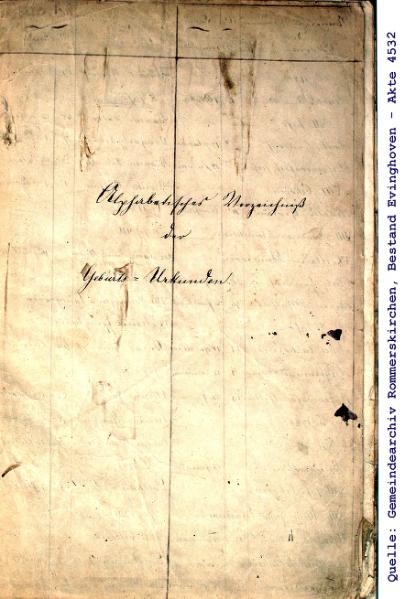 Alphabetisches Verzeichniß
der
Geburts=Urkunden.
Quelle: Gemeindearchiv Rommerskirchen, Bestand Evinghoven - Akte 4532